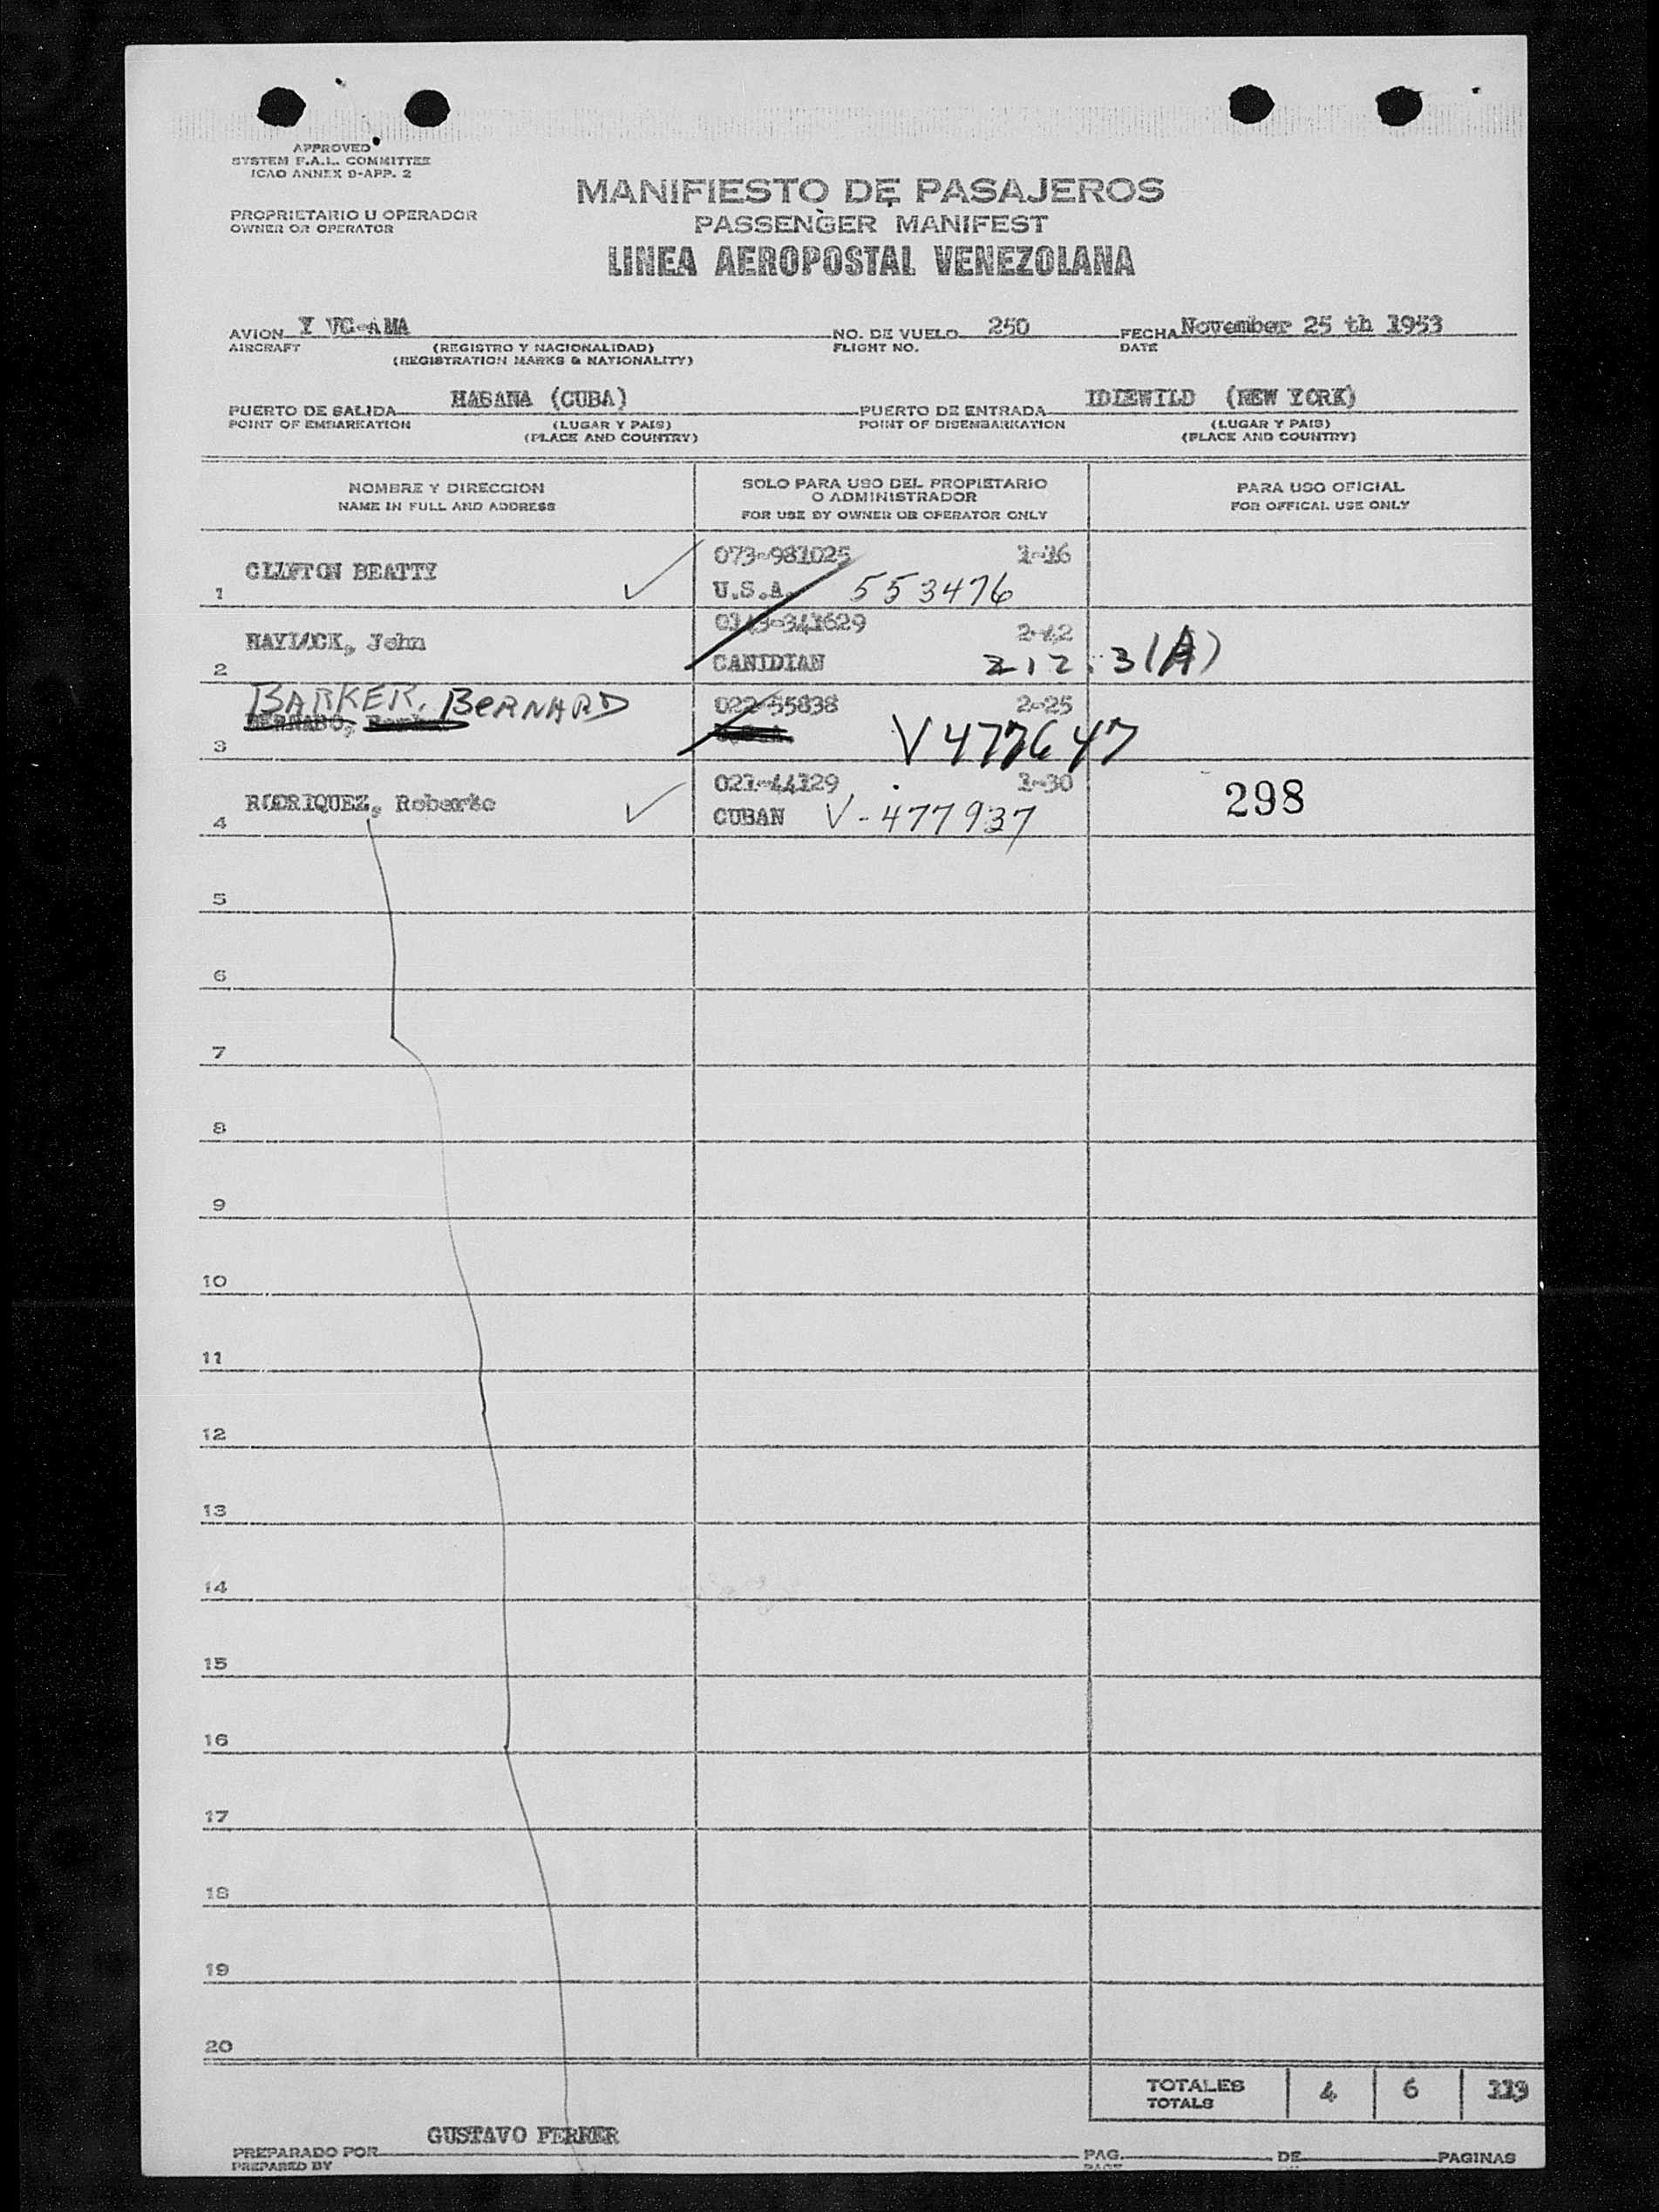 APPROVED
SYSTEM F.A.L. COMMITTEE
ICAO ANNEX 9-APP. 2
PROPRIETARIO U OPERADOR
OWNER OR OPERATOR
MANIFIESTO DE PASAJEROS
PASSENGER MANIFEST
LINEA AEROPOSTAL VENEZOLANA
AVION Y VC-AMA NO. DE VUELO 250 FECHA November 25 th 1953
AIRCRAFT (REGISTRO Y NACIONALIDAD) FLIGHT NO. DATE
(REGISTRATION MARKS & NATIONALITY)
PUERTO DE SALIDA HABANA (CUBA) PUERTO DE ENTRADA IDLEWILD (NEW YORK)
POINT OF EMBARKATION (LUGAR Y PAIS) POINT OF DISEMBARKATION (LUGAR Y PAIS)
(PLACE AND COUNTRY) (PLACE AND COUNTRY)
NOMBRE Y DIRECCION SOLO PARA USO DEL PROPIETARIO O ADMINISTRADOR PARA USO OFICIAL
NAME IN FULL AND ADDRESS FOR USE BY OWNER OR OPERATOR ONLY FOR OFFICAL USE ONLY
073-981025 1-16
1 CLIFTON BEATTY U.S.A. 553476
0143-341629 2-42
2 HAYLOCK, John CANIDIAN 212.3(A)
BARKER, BERNARD 022-55838 2-25
3 BERNABO, V477647
021-44129 1-30
4 RODRIQUEZ, Roberto CUBAN V-477937 298
5
6
7
8
9
10
11
12
13
14
15
16
17
18
19
20
TOTALES 4 6 119
TOTALS
GUSTAVO FERRER
PREPARADO POR PAG. DE PAGINAS
PREPARED BY